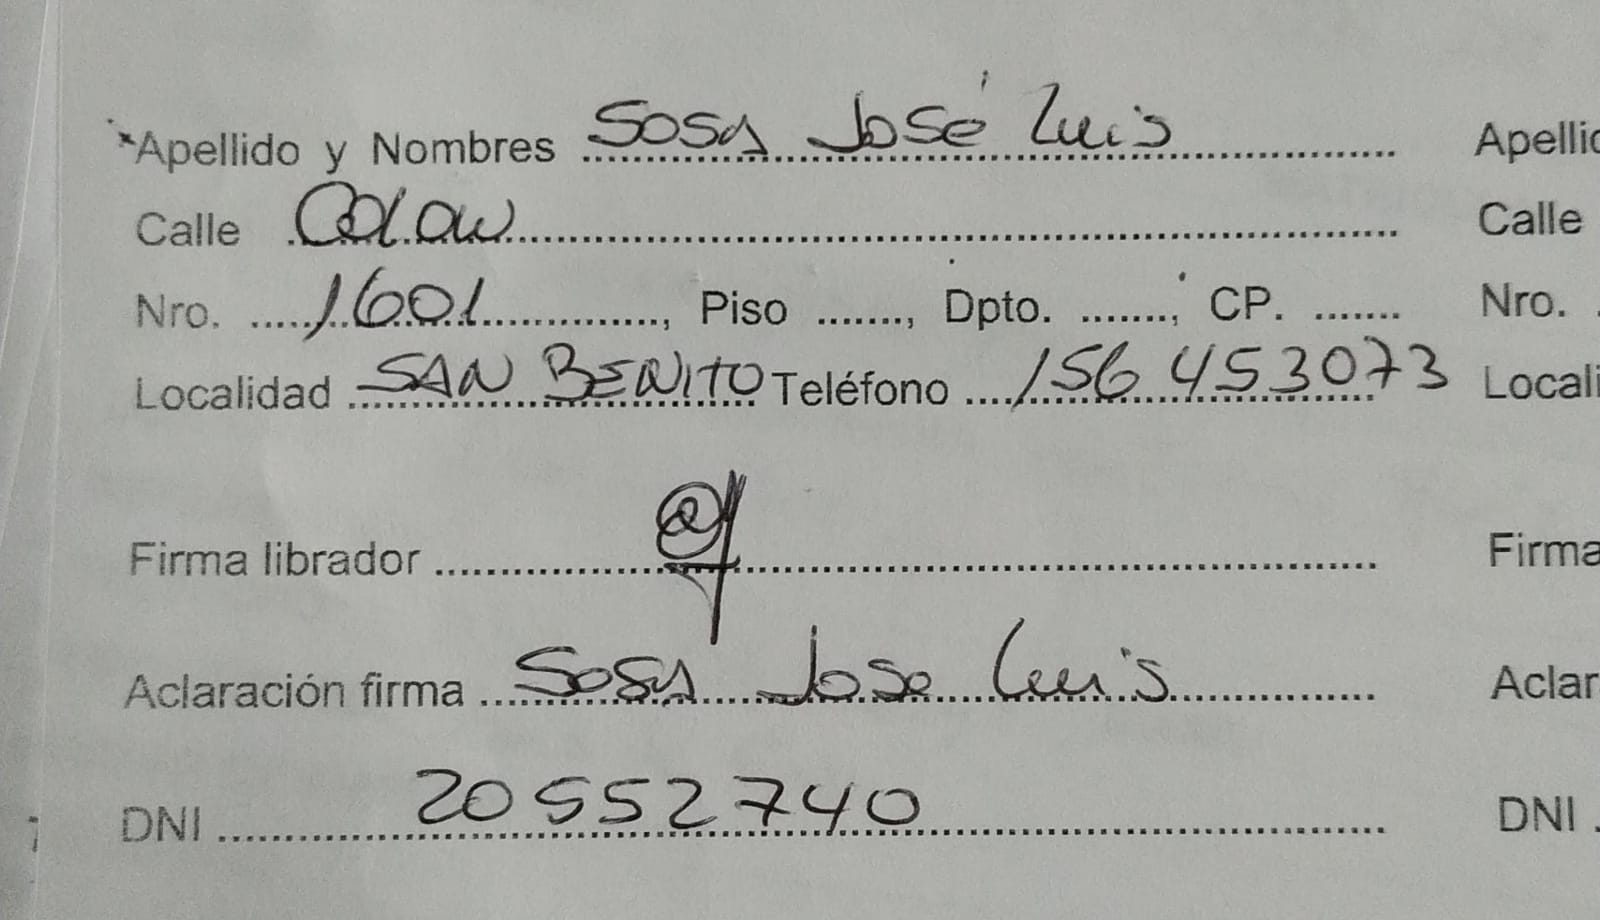 *Apellido y Nombres Sosa José Luis Apellid
Calle Colon Calle
Nro. 1601, Piso ......., Dpto. ......., CP. ....... Nro.
Localidad SAN BENITO Teléfono 156 453073 Locali
Firma librador Firma
Aclaración firma Sosa Jose Luis Aclar
DNI 20552740 DNI